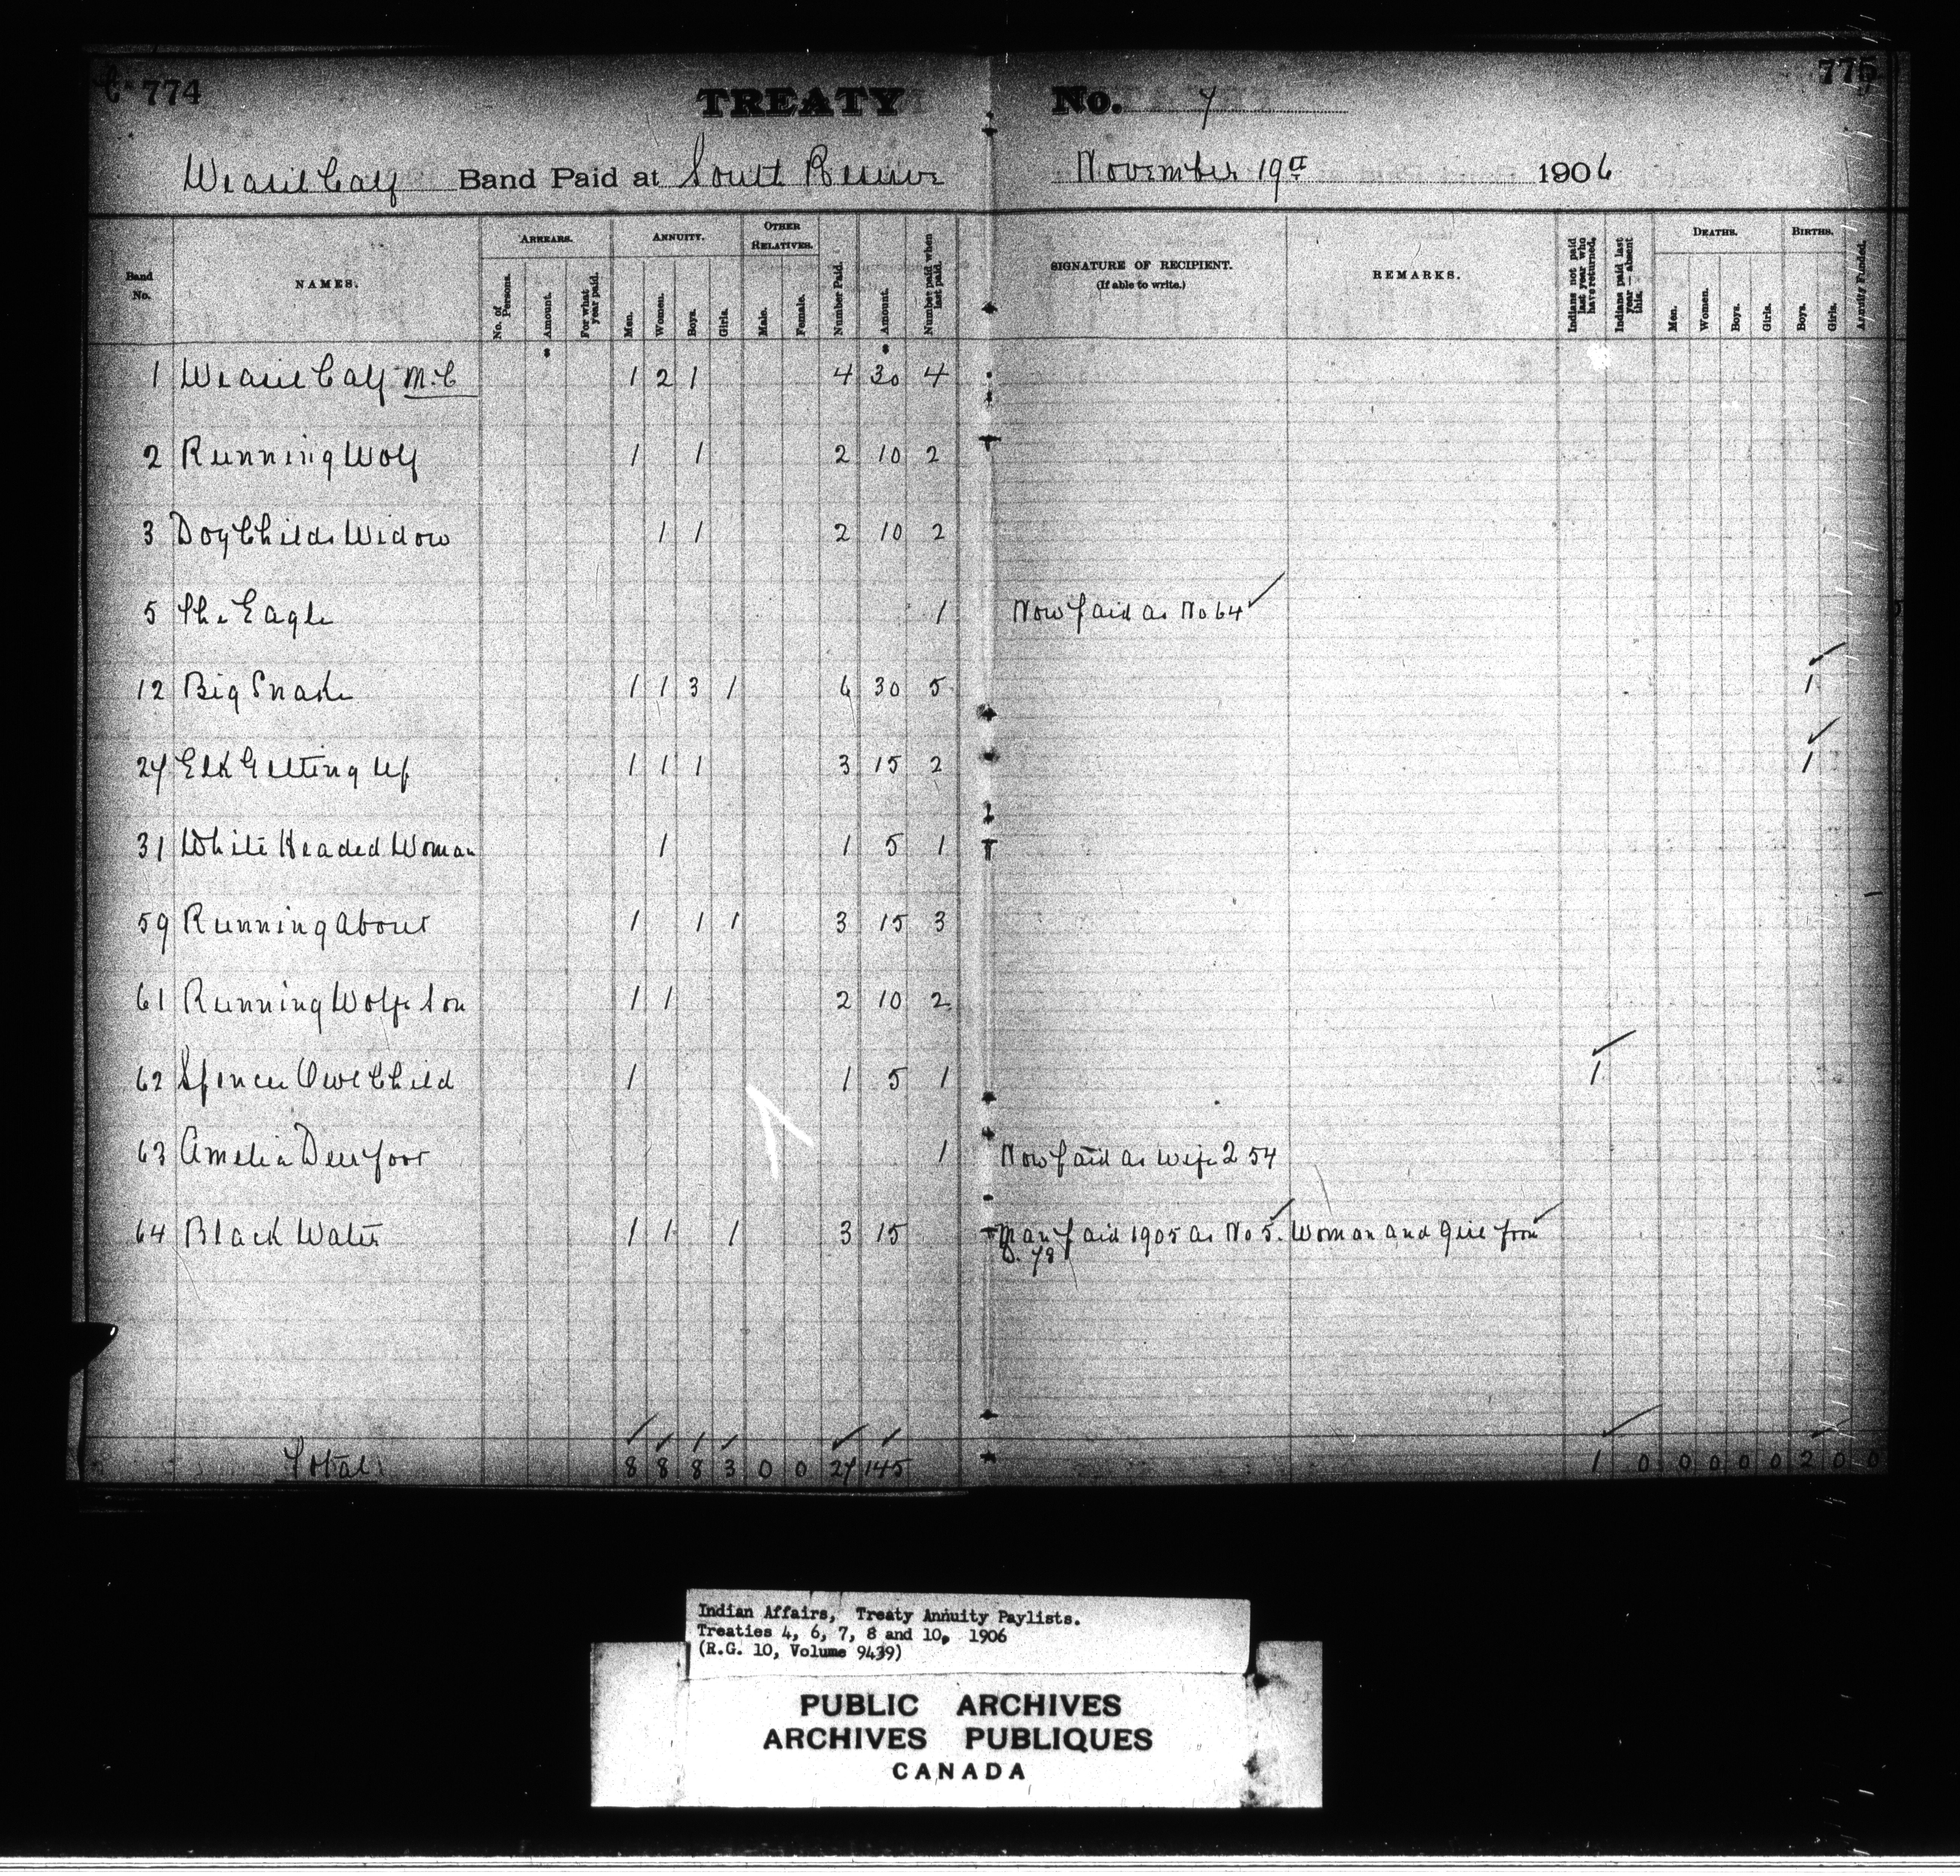 774 TREATY No. 7 775
Weasel Calf Band Paid at South Reserve November 19th 1906
Band No. NAMES. ARREARS. No. of Persons. Amount. For what year paid. ANNUITY. Men. Women. Boys. Girls. OTHER RELATIVES. Male. Female. Number Paid. Amount. Number paid when last paid. SIGNATURE OF RECIPIENT. (If able to write.) REMARKS. Indians not paid last year who have returned. Indians paid last year—absent this. DEATHS. Men. Women. Boys. Girls. BIRTHS. Boys. Girls. Annuity Funded.
1 Weasel Calf M.C 1 2 1 4 30 4
2 Running Wolf 1 1 2 10 2
3 Dog Childs Widow 1 1 2 10 2
5 The Eagle 1 Now paid as No 64
12 Big Snake 1 1 3 1 6 30 5 1
27 Elk Getting Up 1 1 1 3 15 2 1
31 White Headed Woman 1 1 5 1
59 Running About 1 1 1 3 15 3
61 Running Wolfs Son 1 1 2 10 2
62 Spencer Owl Child 1 1 5 1 1
63 Amelia Deerfoot 1 Now paid as wife 2 54
64 Black Water 1 1 1 3 15 Man paid 1905 as No 5. Woman and girl from
D. 78
Total 8 8 8 3 0 0 27 145 1 0 0 0 0 0 2 0 0
Indian Affairs, Treaty Annuity Paylists.
Treaties 4, 6, 7, 8 and 10, 1906
(R.G. 10, Volume 9439)
PUBLIC ARCHIVES
ARCHIVES PUBLIQUES
CANADA